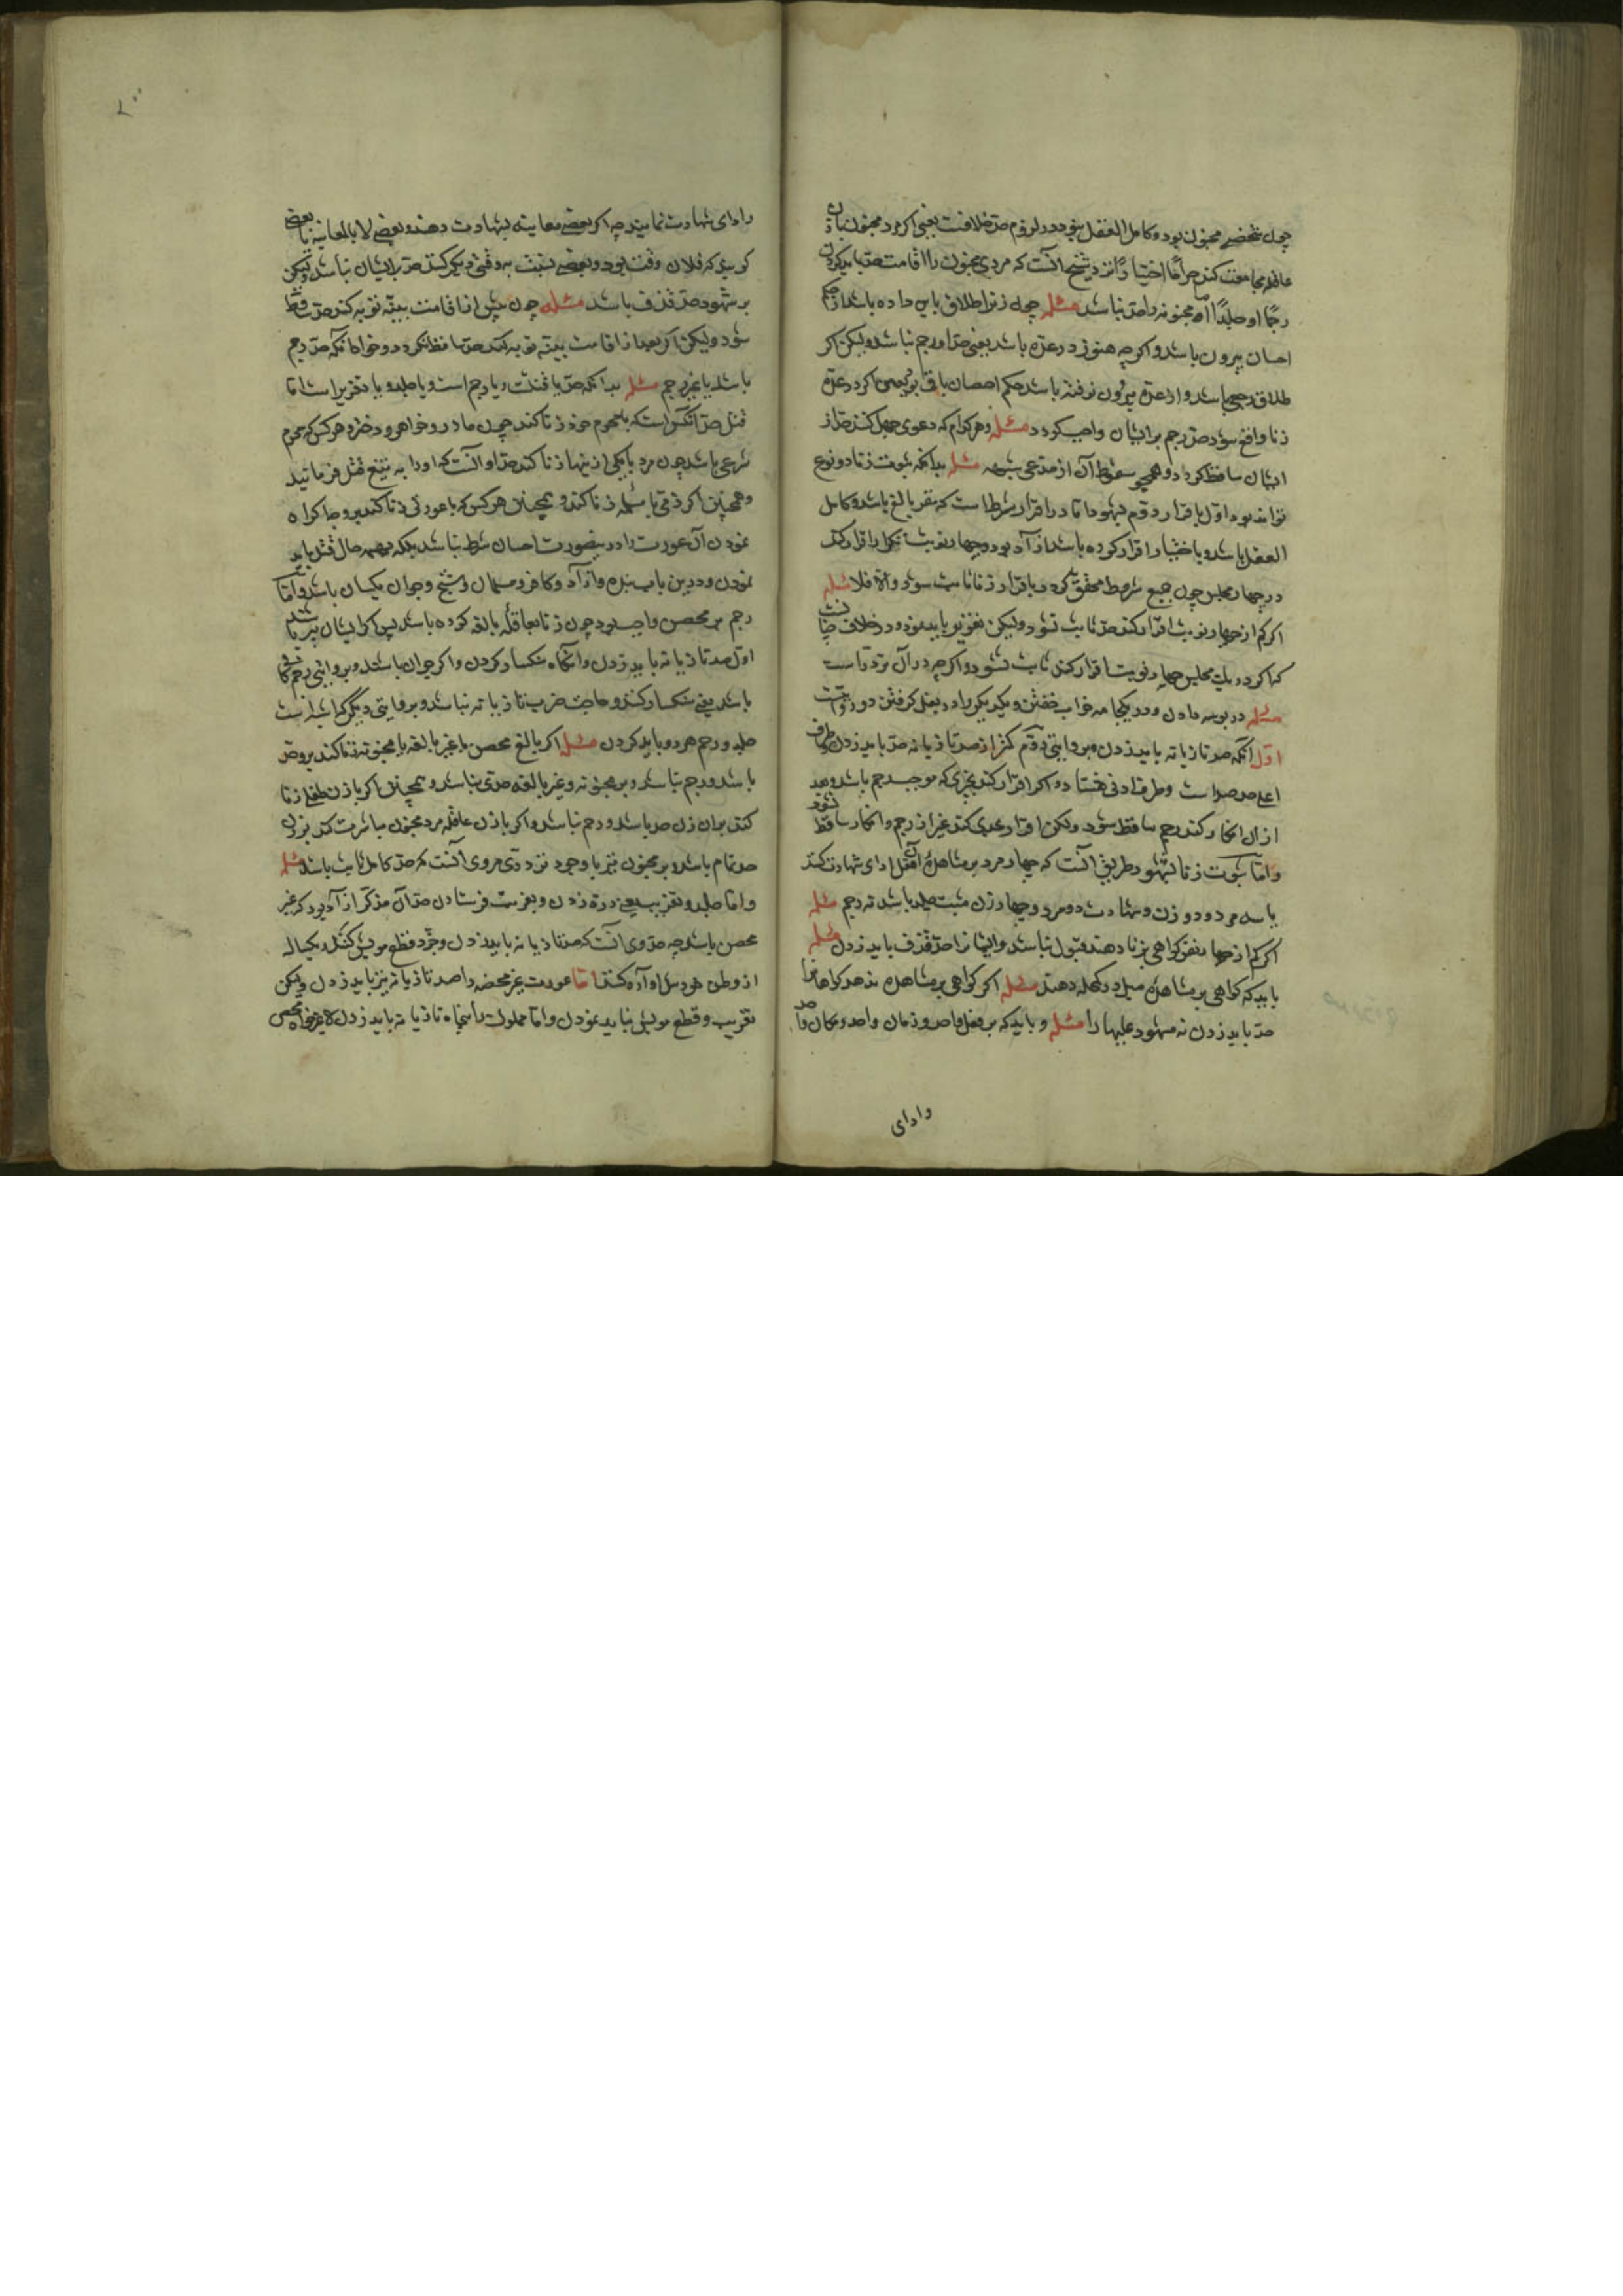 چون شخصی مجنون بود و کامل العقل نبود در لزوم حد خلافست یعنی اگر مرد مجنون با زن
عاقله مجامعت کند حراما اختیارا نزد شیخ آنست که مرد مجنون را اقامت حد باید کردن
رجما او جلدا اما مجنونه را حد نباشد مسئله چون زن را طلاق باین داده باشد از حکم
احصان بیرون باشد و اگر چه هنوز در عده باشد یعنی حد او رجم نباشد ولیکن اگر
طلاق رجعی باشد و از عده بیرون نرفته باشد حکم احصان باقی بود یعنی اگر در عده
زنا واقع شود حد رجم بر ایشان واجب گردد مسئله و هر کدام که دعوی جهل کنند حد از
ایشان ساقط گردد و همچو سقوط آن از مدعی شبهه مسئله بدانکه ثبوت زنا دو نوع
تواند بود اول باقرار دوم بشهود اما در اقرار شرط است که مقر بالغ باشد و کامل
العقل باشد و باختیار اقرار کرده باشد و آزاد بود و چهار نوبت تکرار اقرار کند
در چهار مجلس چون جمیع شروط محقق گردد باقرار زنا ثابت شود والا فلا مسئله
اگر کم از چهار نوبت اقرار کند حد ثابت نشود ولیکن تعزیر باید نمود و در خلاف
که اگر در یک مجلس چهار نوبت اقرار کند ثابت نشود و اگر چه در آن تردد است
مسئله در بوسه دادن و در یکجامه خواب خفتن و یکدیگر را در بغل گرفتن دو روایتست
اول آنکه صد تازیانه باید زدن و بروایتی دوم کمتر از صد تازیانه حد باید زدن طرف
اعلی صد صواست و طرف ادنی هشتاد و اگر اقرار کند بچیزی که موجب رجم باشد و بعد
از آن انکار کند رجم ساقط شود ولیکن اقرار بحدی کند غیر از رجم و انکار ساقط نشود
و اما ثبوت زنا بشهود طریقی آنست که چهار مرد بر مشاهده آن فعل ادای شهادت کنند
یا سه مرد و دو زن و شهادت دو مرد و چهار زن مثبت جلد باشد نه رجم مسئله
اگر کم از چهار نفر گواهی بزنا دهند قبول نباشد و ایشانرا حد قذف باید زدن مسئله
باید که گواهی بر مشاهده میل در مکحله دهند مسئله اگر گواهی بر مشاهده ندهد گواهانرا
حد باید زدن نه مشهود علیها را مسئله و باید که بر فعل واحد و زمان واحد و مکان واحد
را ادای
را ادای شهادت نمایند چه اگر بعضی معاینه شهادت دهند و بعضی لا بالمعاینه یا بعضی
گویند که فلان وقت بود و بعضی نسبت بوقتی دیگر کنند حد بر ایشان نباشد ولیکن
بر شهود حد قذف باشد مسئله چون پیش از اقامت بینه توبه کند حد ساقط
شود ولیکن اگر بعد از اقامت بینه توبه کند حد ساقط نگردد و خواه آنکه حد رجم
باشد یا غیر رجم مسئله بدانکه حد یا قتلست و یا رجم است و یا جلد و یا تعزیر است اما
قتل حد آنکس است که با محرم خود زنا کند چون مادر و خواهر و دختر و هر کس که محرم
شرعی باشد چون مرد با یکی از اینها زنا کند حد او آنست که او را به تیغ قتل فرمایند
و همچنین اگر ذمی با مسلمه زنا کند و همچنین هر کس که با عورتی زنا کند بر وجه اکراه
نمودن آن عورت را درینصورت احصان شرط نباشد بلکه بهمه حال قتل باید
نمودن و درین باب بنده و آزاد و کافر و مسلمان و شیخ و جوان یکسان باشد و اما
رجم بر محصن واجب بود چون زنا بعاقله بالغه کرده باشد پس اگر ایشان پیر باشند
اول صد تازیانه باید زدن و آنگاه سنگسار کردن و اگر جوان باشند و بروایتی رجم کافی
باشد یعنی سنگسار کنند و حاجت ضرب تازیانه نباشد و بروایتی دیگر که اشهر است
جلد و رجم هر دو باید کردن مسئله اگر بالغ محصن با غیر بالغه یا مجنونه زنا کند بر وی حد
باشد و رجم نباشد و بر مجنونه و غیر بالغه حدی نباشد و همچنین اگر با زن طفلی زنا
کند بر آن زن حد باشد و رجم نباشد و اگر با زن عاقله مرد مجنون مباشرت کند بر زن
حد تمام باشد و بر مجنون نیز با وجود تردد مروی آنست که حد کامل ثابت باشد مسئله
و اما جلد و تغریب یعنی دره زدن و بغربت فرستادن حد آن مذکر آزاد بود که غیر
محصن باشد چه حد وی آنست که صد تازیانه باید زدن و جز و قطع مویش کنند و یکساله
از وطن خودش آواره کنند اما عورت غیر محصنه را صد تازیانه نیز باید زدن ولیکن
تغریب و قطع مویش نباید نمودن و اما مملوک را پنجاه تازیانه باید زدن محصن